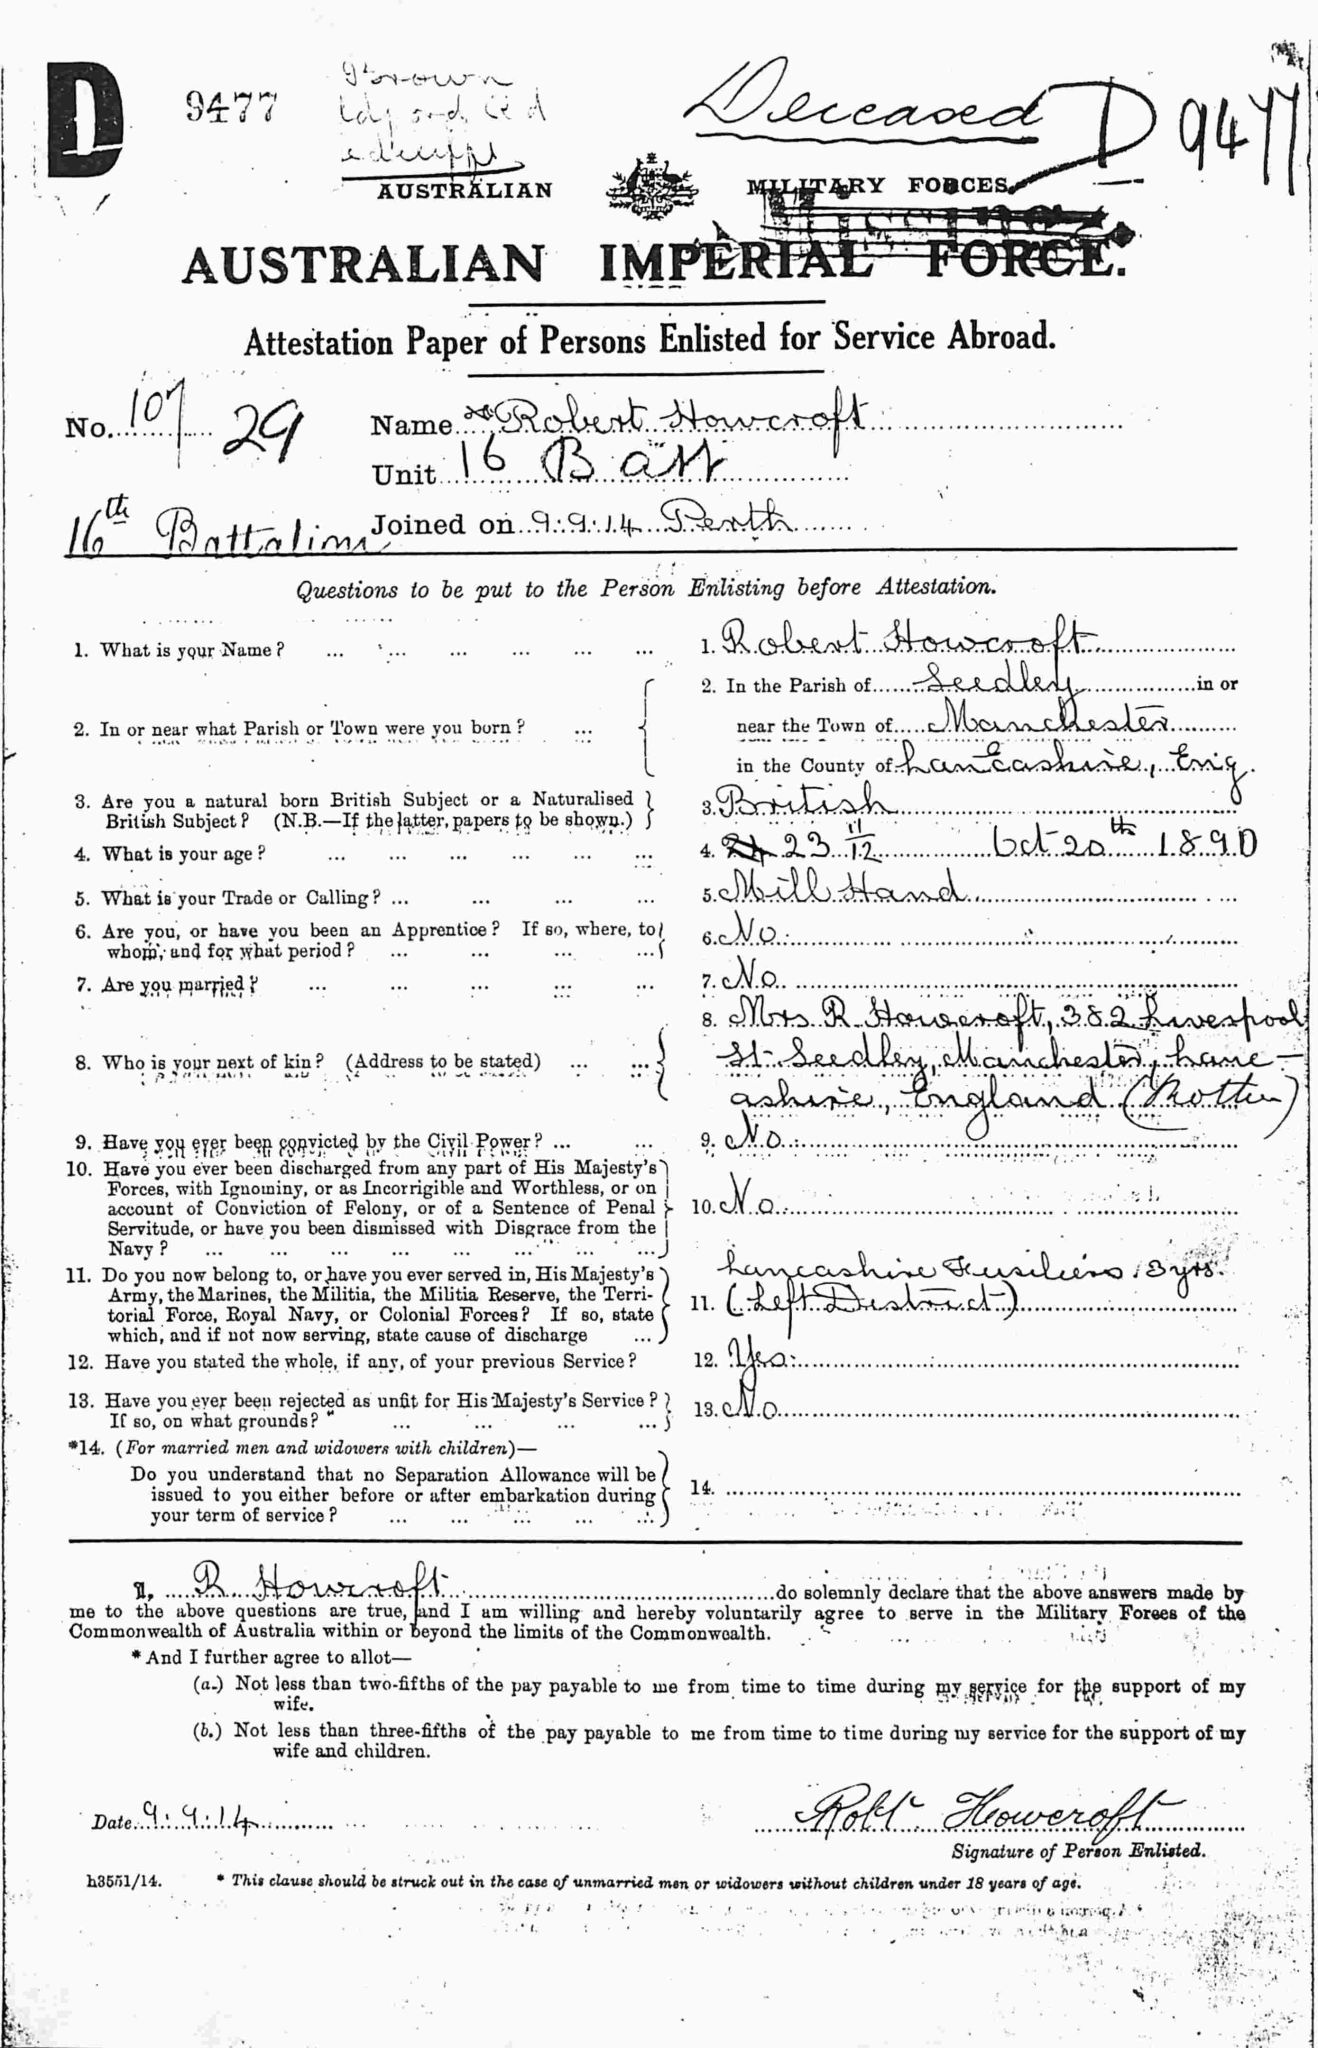 D
9477
Brown
Deceased D 9477
AUSTRALIAN MILITARY FORCES.
AUSTRALIAN IMPERIAL FORCE.
Attestation Paper of Persons Enlisted for Service Abroad.
No. 107 29 Name Robert Howcroft
Unit 16 Batt
16th Battalion Joined on 9.9.14 Perth
Questions to be put to the Person Enlisting before Attestation.
1. What is your Name? ... ... ... ... ... ... 1. Robert Howcroft
2. In or near what Parish or Town were you born? ... 2. In the Parish of Seedley in or
near the Town of Manchester
in the County of Lancashire, Eng.
3. Are you a natural born British Subject or a Naturalised
British Subject? (N.B.—If the latter, papers to be shown.) 3. British
4. What is your age? ... ... ... ... ... ... 4. 24 23 11/12 Oct 20th 1890
5. What is your Trade or Calling? ... ... ... ... 5. Mill Hand
6. Are you, or have you been an Apprentice? If so, where, to
whom, and for what period? ... ... ... ... 6. No.
7. Are you married? ... ... ... ... ... 7. No
8. Who is your next of kin? (Address to be stated) ... ... 8. Mrs R Howcroft, 382 Liverpool
St Seedley, Manchester, Lanc-
ashire, England (Mother)
9. Have you ever been convicted by the Civil Power? ... ... 9. No.
10. Have you ever been discharged from any part of His Majesty's
Forces, with Ignominy, or as Incorrigible and Worthless, or on
account of Conviction of Felony, or of a Sentence of Penal
Servitude, or have you been dismissed with Disgrace from the
Navy? ... ... ... ... ... ... ... ... 10. No.
11. Do you now belong to, or have you ever served in, His Majesty's
Army, the Marines, the Militia, the Militia Reserve, the Terri-
torial Force, Royal Navy, or Colonial Forces? If so, state
which, and if not now serving, state cause of discharge ...
Lancashire Fusiliers. 3 yrs.
11. (Left District)
12. Have you stated the whole, if any, of your previous Service? 12. Yes.
13. Have you ever been rejected as unfit for His Majesty's Service?
If so, on what grounds? ... ... ... ... 13. No
*14. (For married men and widowers with children)—
Do you understand that no Separation Allowance will be
issued to you either before or after embarkation during
your term of service? ... ... ... ... ... 14.
I, R Howcroft do solemnly declare that the above answers made by
me to the above questions are true, and I am willing and hereby voluntarily agree to serve in the Military Forces of the
Commonwealth of Australia within or beyond the limits of the Commonwealth.
*And I further agree to allot—
(a.) Not less than two-fifths of the pay payable to me from time to time during my service for the support of my
wife.
(b.) Not less than three-fifths of the pay payable to me from time to time during my service for the support of my
wife and children.
Date 9.9.14 Robt Howcroft
Signature of Person Enlisted.
h3551/14. * This clause should be struck out in the case of unmarried men or widowers without children under 18 years of age.